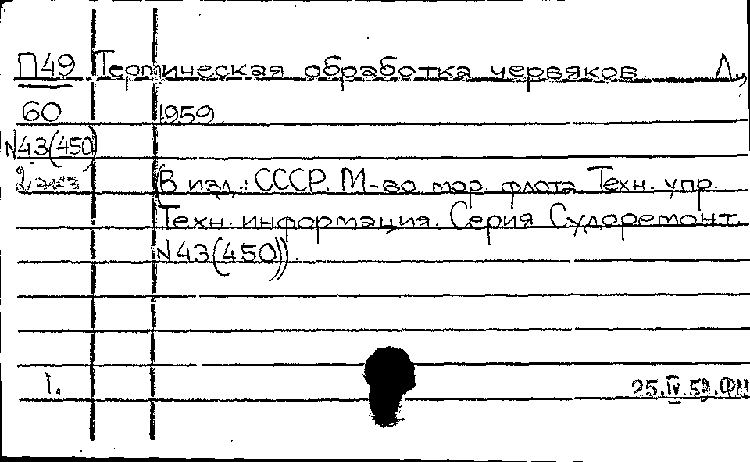 П49 Термическая обработка червяков Л,
60 1959
N43(450)
2 экз (В изд.: СССР. М-во мор. флота. Техн. упр.
Техн. информация. Серия Судоремонт.
N43(450)).
1. 25.IV.59.ФМ